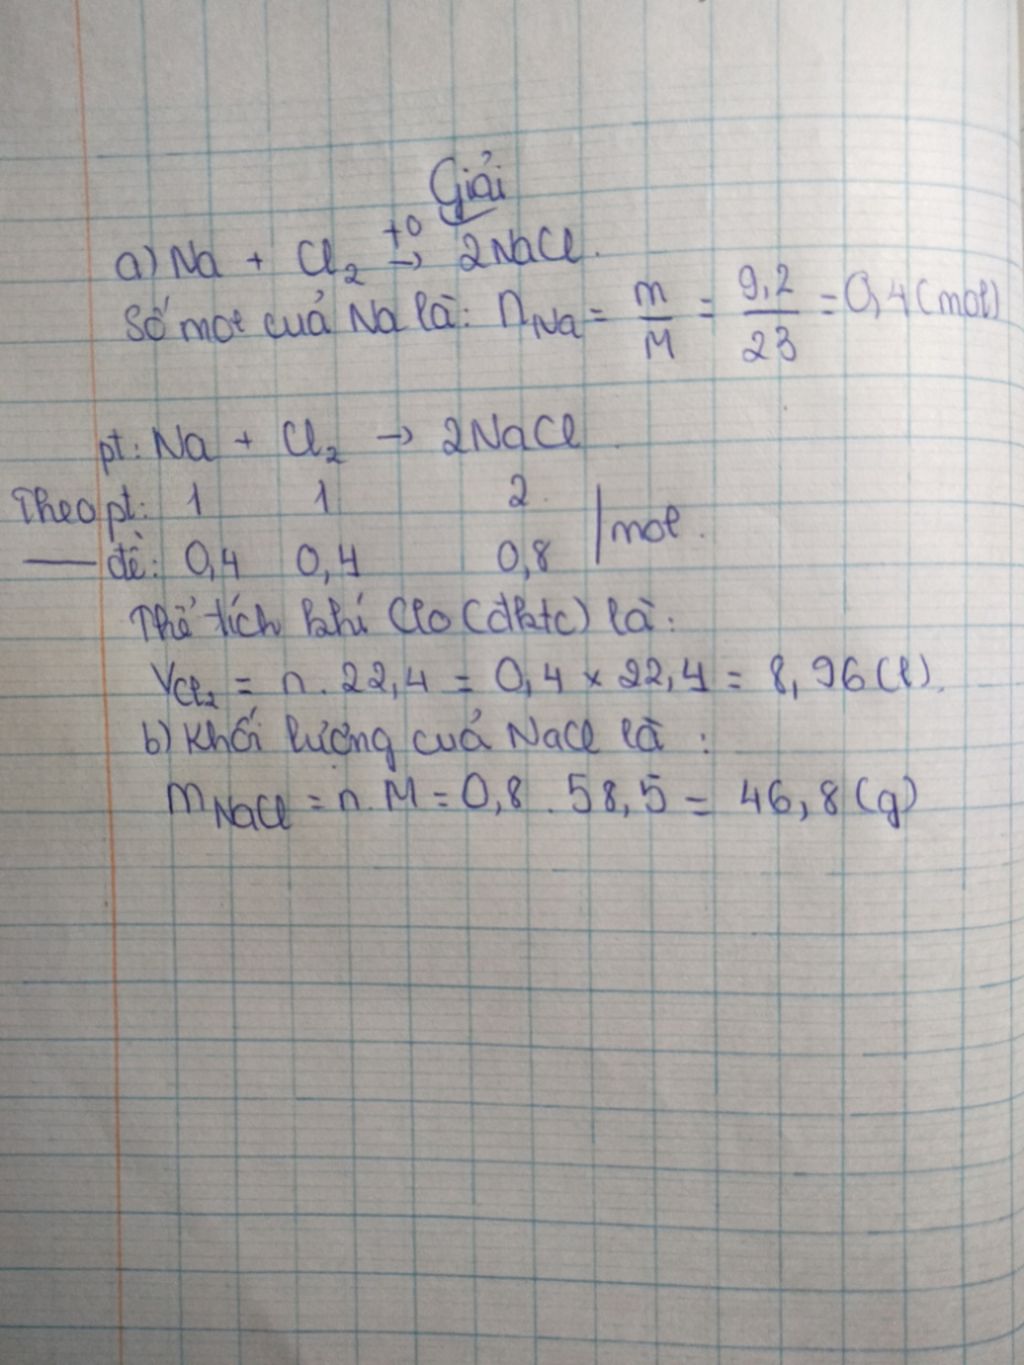 Giải
a) Na + Cl₂ →^{t0} 2NaCl.
Số mol cuả Na là: n_{Na} = m/M = 9,2/23 = 0,4 (mol)
pt: Na + Cl₂ → 2NaCl.
Theo pt: 1 1 2
— đề: 0,4 0,4 0,8 / mol.
Thể tích khí Clo (đktc) là:
V_{Cl₂} = n. 22,4 = 0,4 × 22,4 = 8,96 (l).
b) Khối lượng cuả NaCl là :
m_{NaCl} = n. M = 0,8 . 58,5 = 46,8 (g)